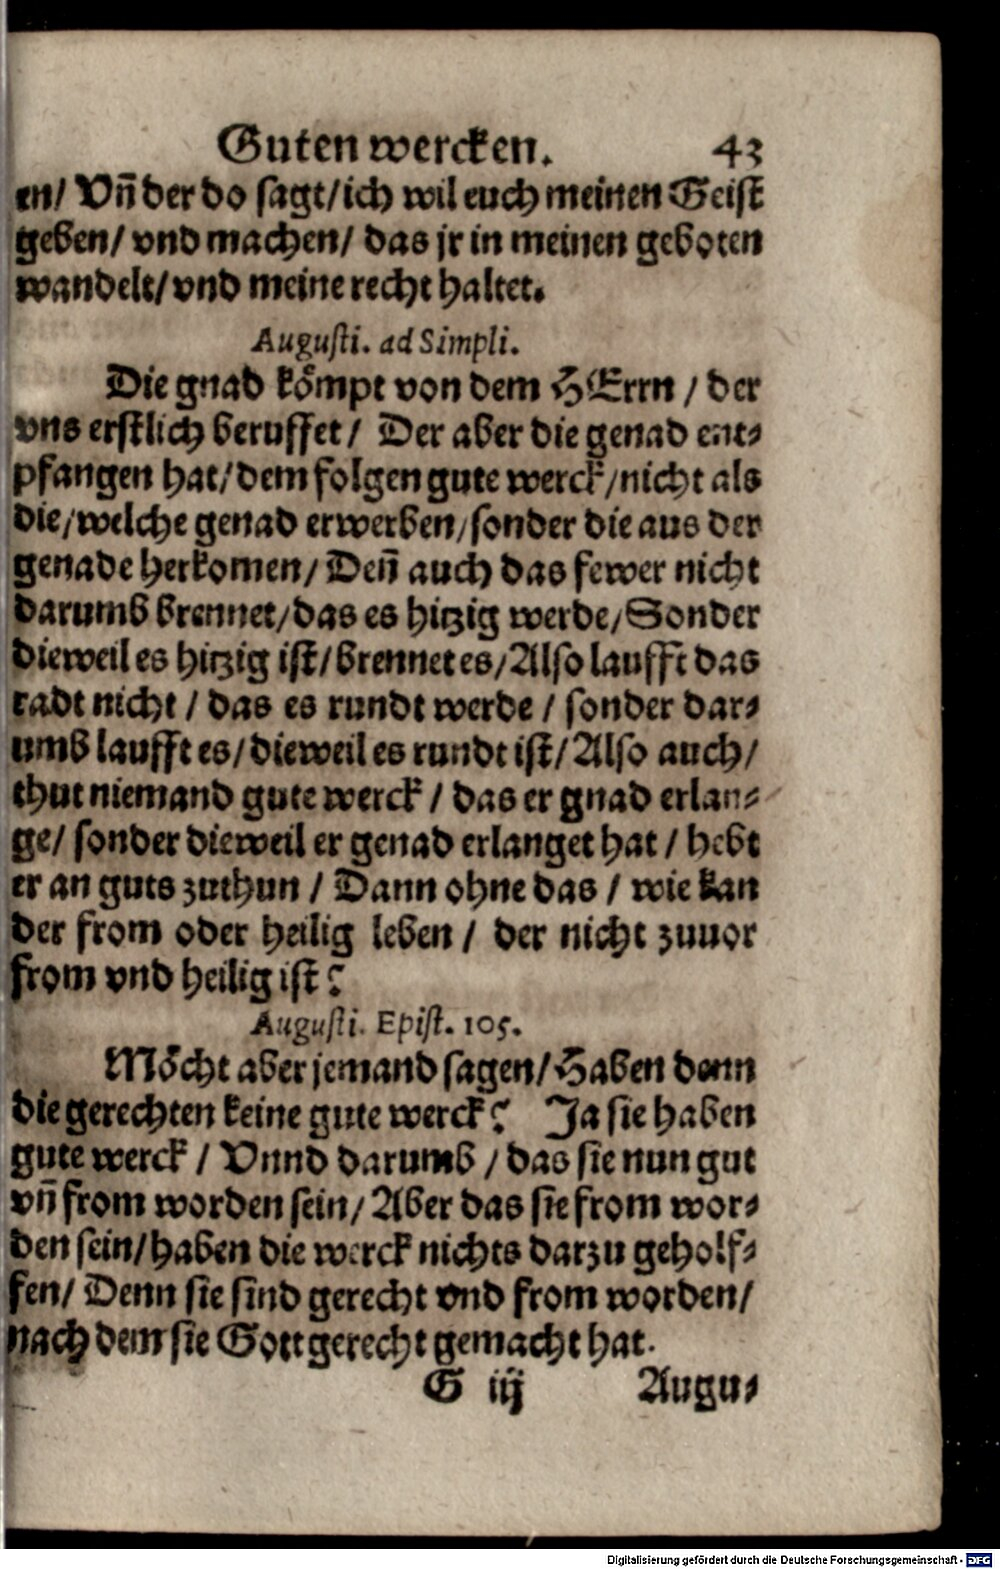 Guten wercken. 43
en/ Vñ der do sagt/ ich wil euch meinen Geist
geben/ vnd machen/ das jr in meinen geboten
wandelt/ vnd meine recht haltet.
Augusti. ad Simpli.
Die gnad kömpt von dem HErrn / der
vns erstlich beruffet / Der aber die genad ent-
pfangen hat/ dem folgen gute werck/ nicht als
die/ welche genad erwerben/ sonder die aus der
genade herkomen/ Deñ auch das fewer nicht
darumb brennet/ das es hitzig werde/ Sonder
dieweil es hitzig ist/ brennet es/ Also laufft das
radt nicht / das es rundt werde / sonder dar-
umb laufft es/ dieweil es rundt ist/ Also auch/
thut niemand gute werck / das er gnad erlan-
ge/ sonder dieweil er genad erlanget hat / hebt
er an guts zuthun / Dann ohne das / wie kan
der from oder heilig leben / der nicht zuuor
from vnd heilig ist?
Augusti. Epist. 105.
Möcht aber jemand sagen/ Haben denn
die gerechten keine gute werck? Ja sie haben
gute werck / Vnnd darumb / das sie nun gut
vñ from worden sein/ Aber das sie from wor-
den sein/ haben die werck nichts darzu geholf-
fen/ Denn sie sind gerecht vnd from worden/
nach dem sie Gott gerecht gemacht hat.
G iij Augu-
Digitalisierung gefördert durch die Deutsche Forschungsgemeinschaft - DFG